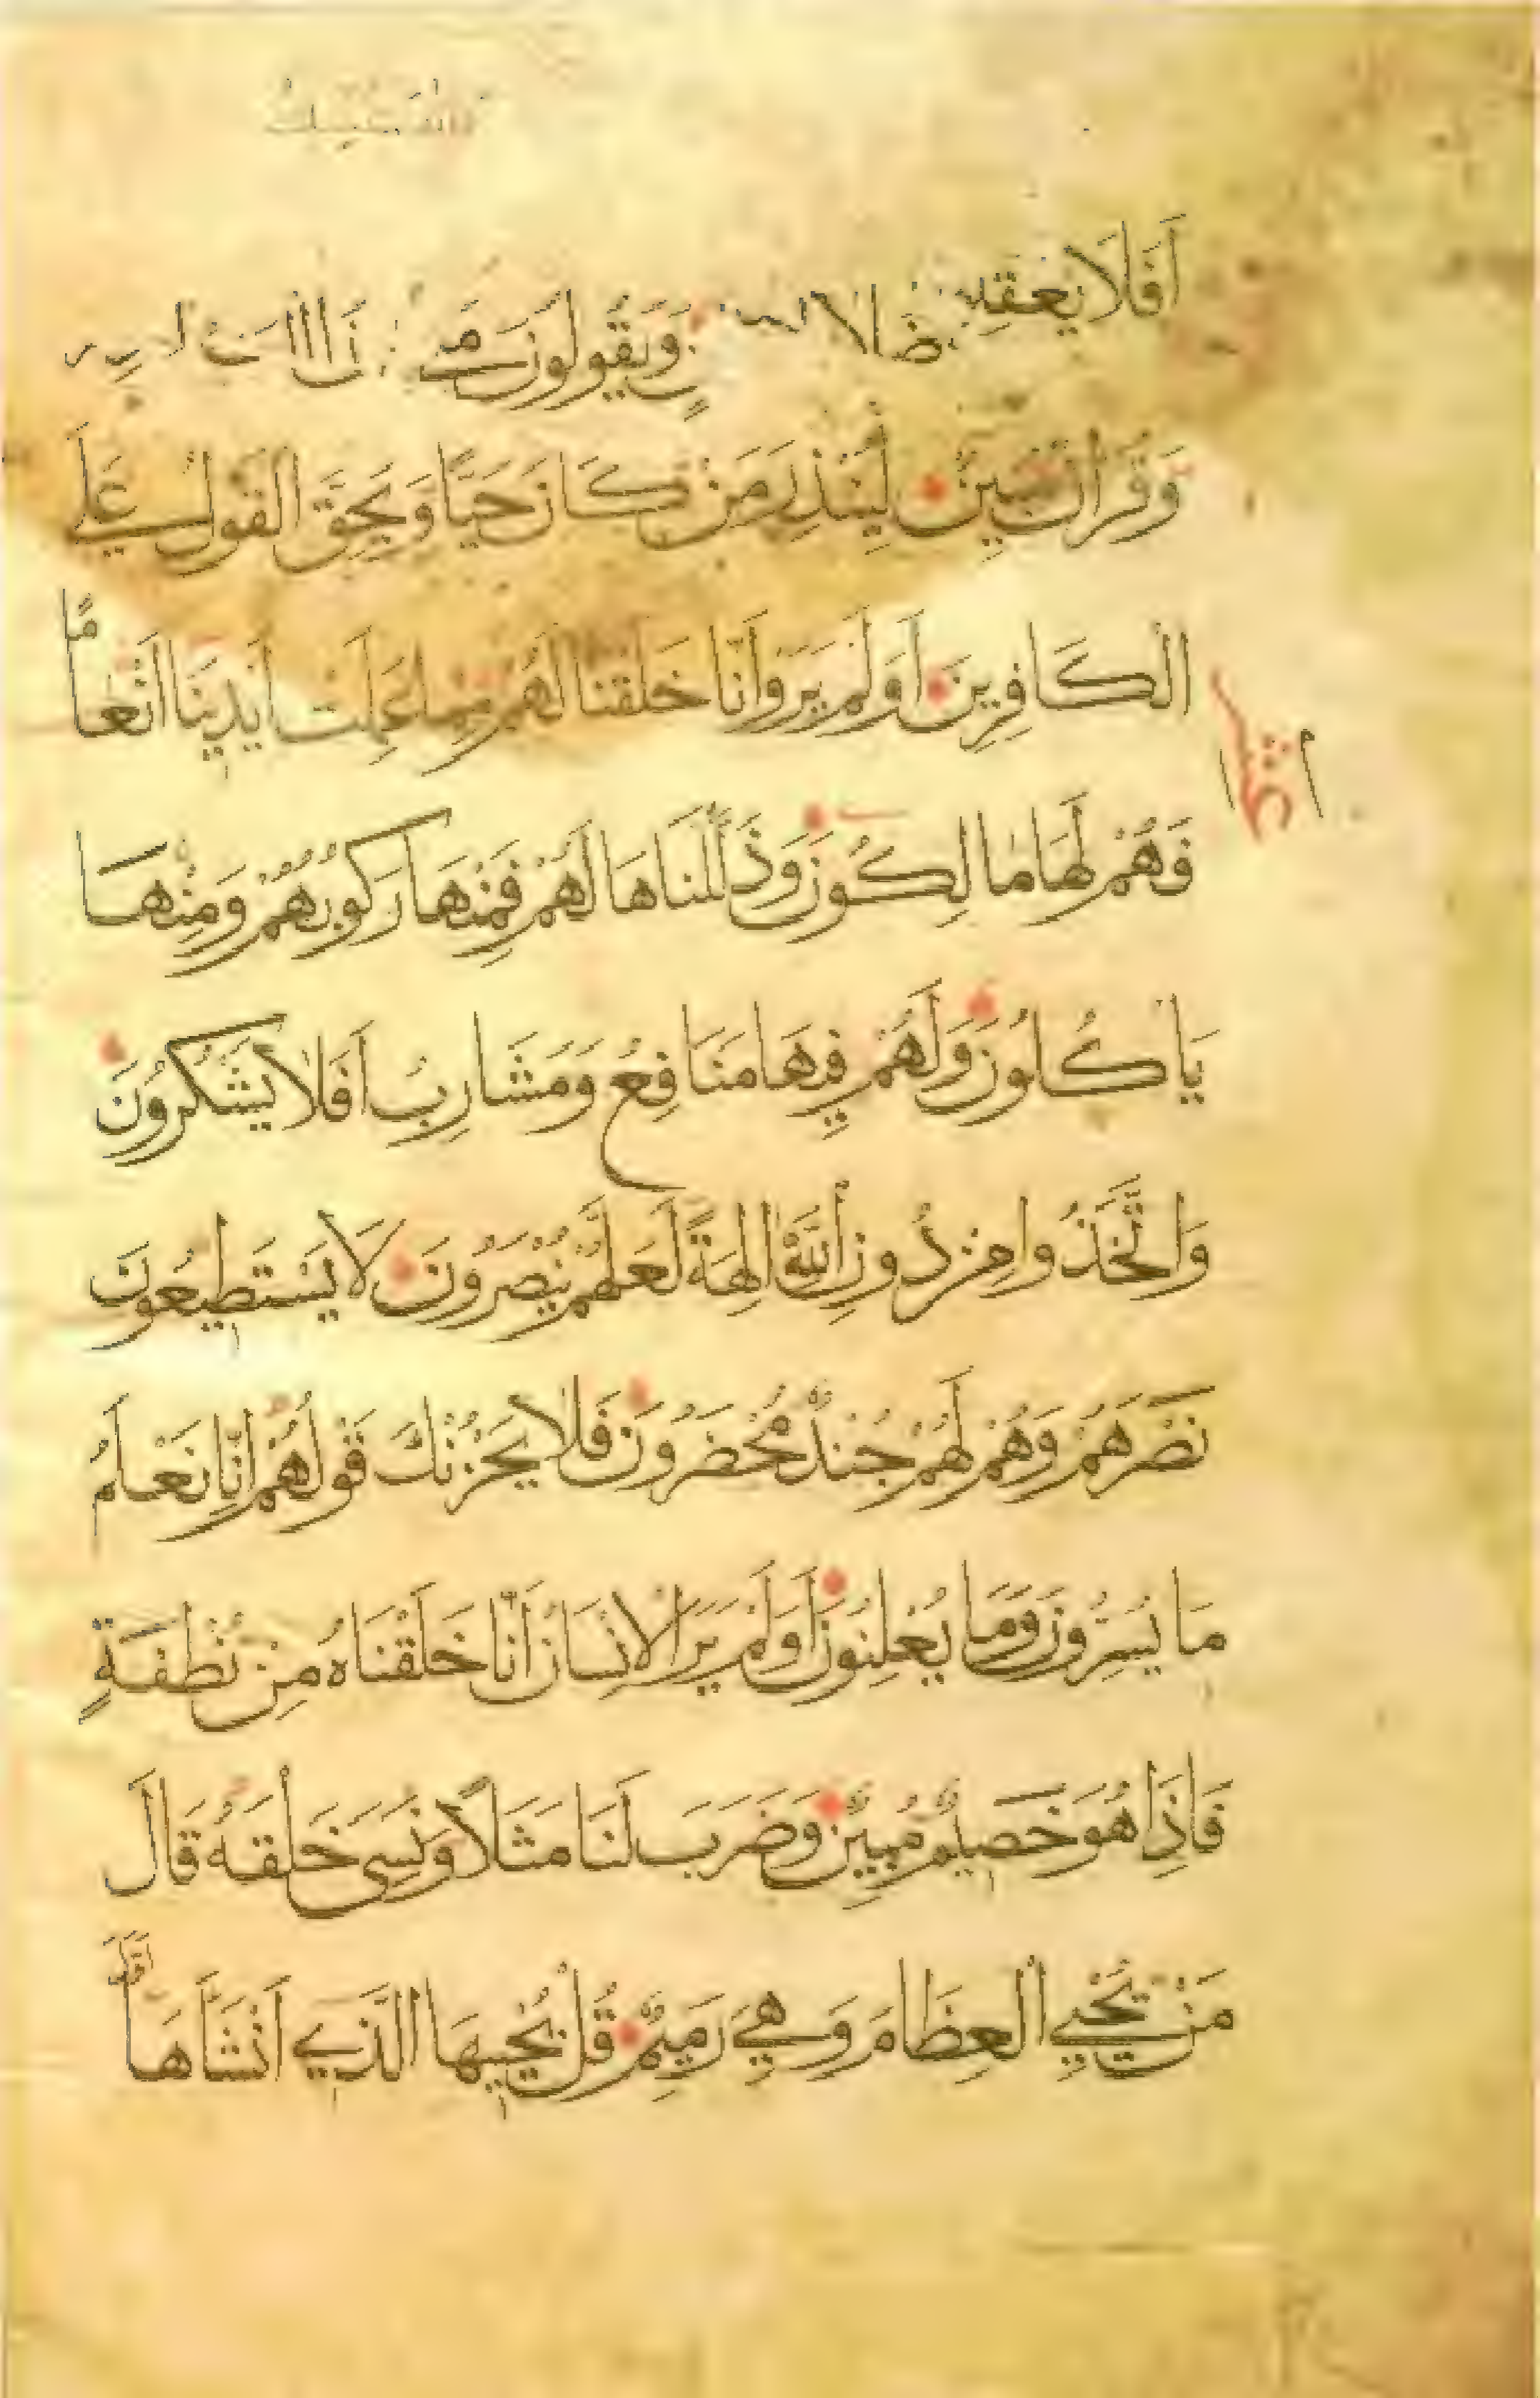 اَفَلَا يَعْقِلُو ضلالا وَيَقُولُونَ
وَقُرْاٰنٌ مُبِينٌ لِيُنْذِرَ مَنْ كَانَ حَيًّا وَيَحِقَّ الْقَوْلُ عَلَى
الْكَافِرِينَ اَوَلَمْ يَرَوْا اَنَّا خَلَقْنَا لَهُمْ مِمَّا عَمِلَتْ اَيْدِينَا اَنْعَامًا
فَهُمْ لَهَا مَالِكُونَ وَذَلَّلْنَاهَا لَهُمْ فَمِنْهَا رَكُوبُهُمْ وَمِنْهَا
يَاْكُلُونَ وَلَهُمْ فِيهَا مَنَافِعُ وَمَشَارِبُ اَفَلَا يَشْكُرُونَ
وَاتَّخَذُوا مِنْ دُونِ اللّٰهِ اٰلِهَةً لَعَلَّهُمْ يُنْصَرُونَ لَا يَسْتَطِيعُونَ
نَصْرَهُمْ وَهُمْ لَهُمْ جُنْدٌ مُحْضَرُونَ فَلَا يَحْزُنْكَ قَوْلُهُمْ اِنَّا نَعْلَمُ
مَا يُسِرُّونَ وَمَا يُعْلِنُونَ اَوَلَمْ يَرَ الْاِنْسَانُ اَنَّا خَلَقْنَاهُ مِنْ نُطْفَةٍ
فَاِذَا هُوَ خَصِيمٌ مُبِينٌ وَضَرَبَ لَنَا مَثَلًا وَنَسِيَ خَلْقَهُ قَالَ
مَنْ يُحْيِي الْعِظَامَ وَهِيَ رَمِيمٌ قُلْ يُحْيِيهَا الَّذِي اَنْشَاَهَا اَوَّلَ